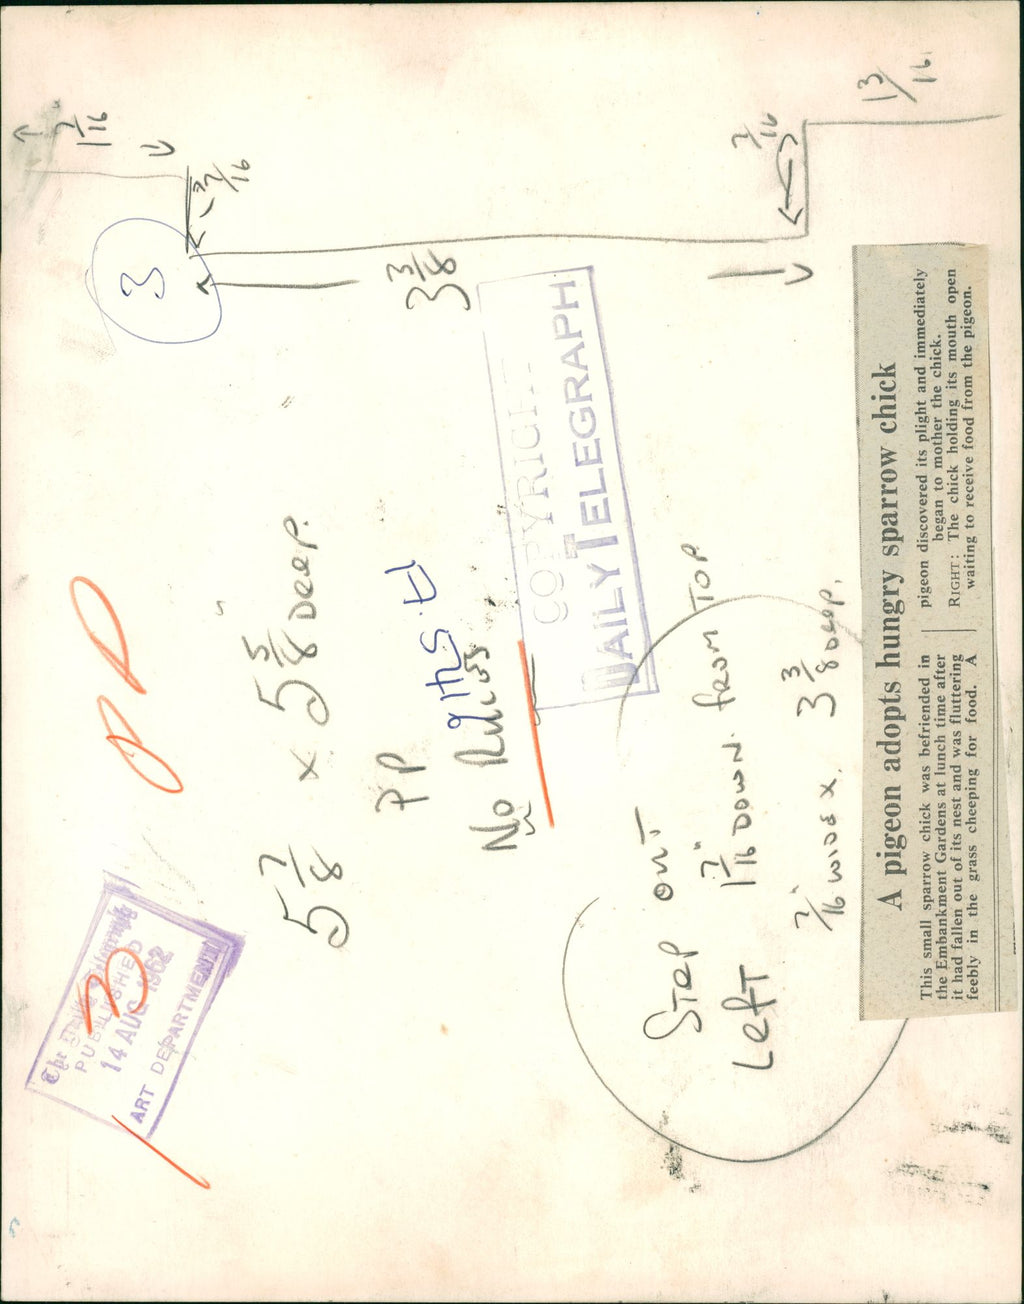 1 7/16
3
7/16
3 3/8
7/16
1 3/16
5 7/8 x 5 5/8" Deep.
PP
No Rules
COPYRIGH
DAILY TELEGRAPH
PUBLISHED
14 AUG 1962
ART DEPARTMENT
3
STEP OUT
LEFT 1 7/16" DOWN FROM TOP
7/16" WIDE X 3 3/8 Deep.
A pigeon adopts hungry sparrow chick
This small sparrow chick was befriended in
the Embankment Gardens at lunch time after
it had fallen out of its nest and was fluttering
feebly in the grass cheeping for food. A
pigeon discovered its plight and immediately
began to mother the chick.
RIGHT: The chick holding its mouth open
waiting to receive food from the pigeon.